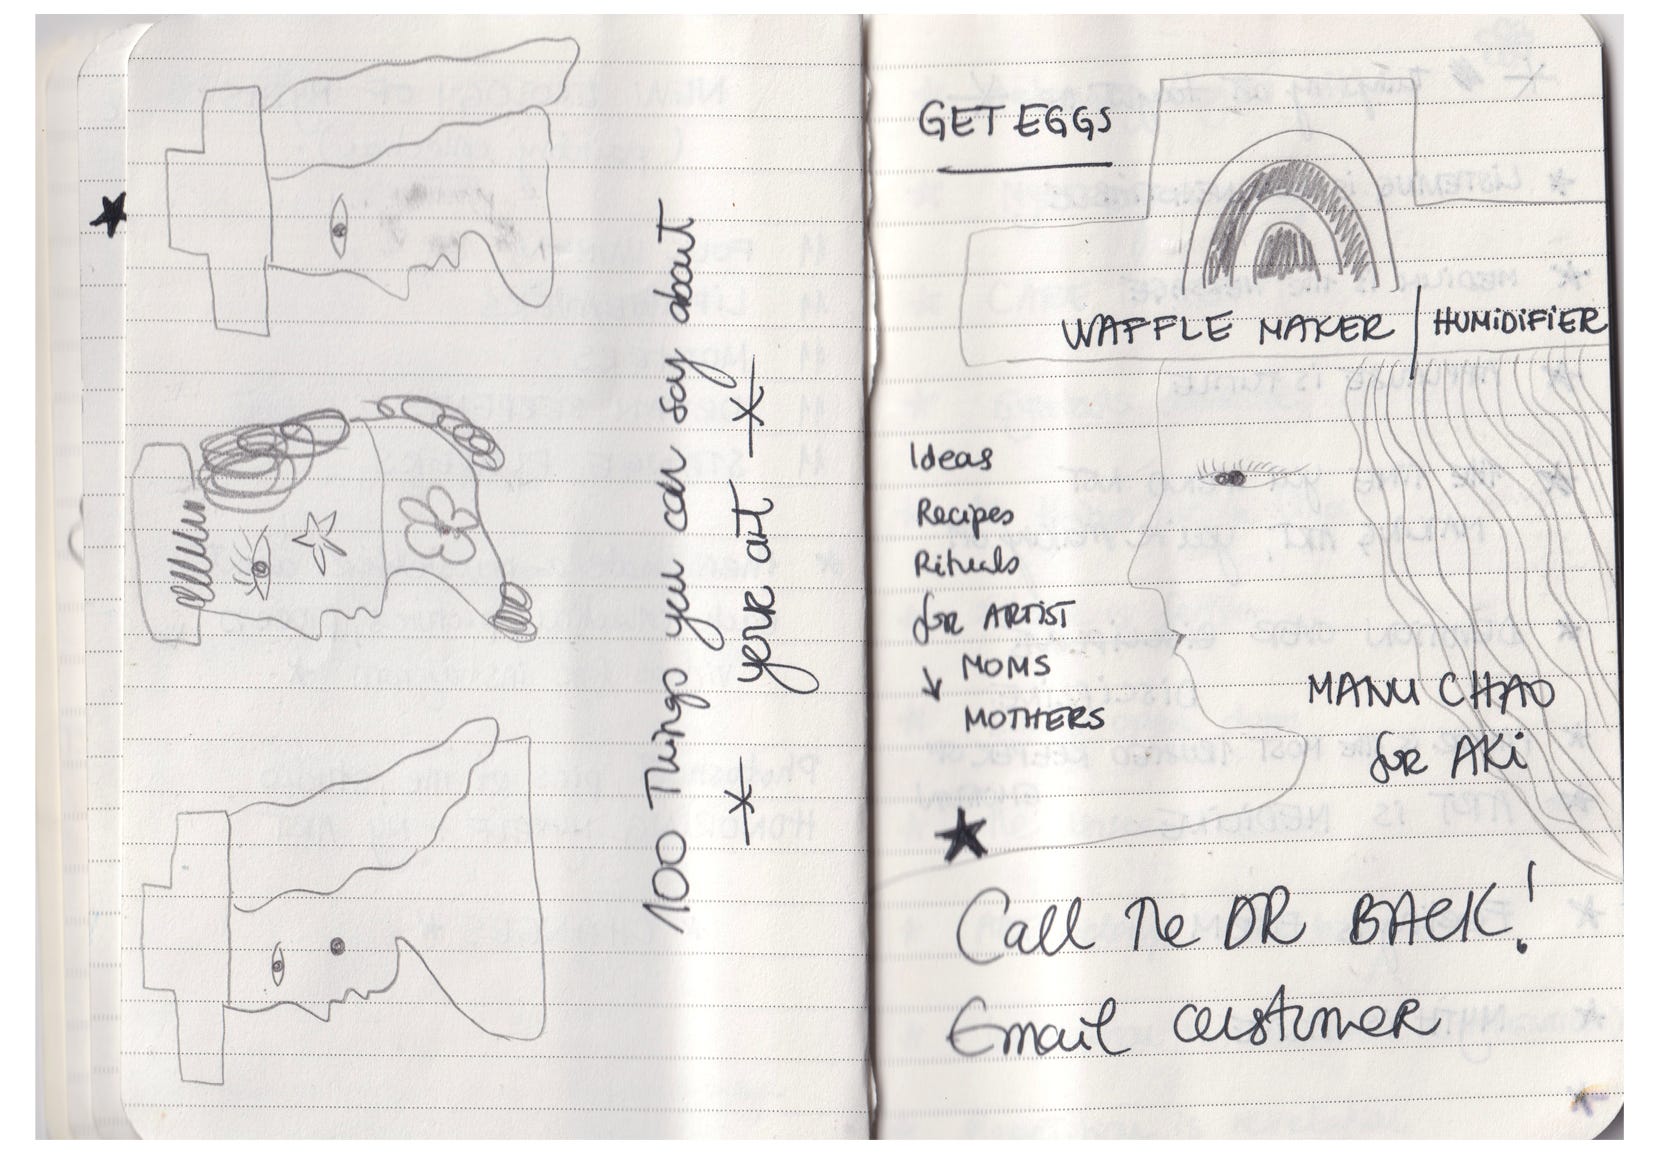 100 Things you can say about
your art
GET EGGS
WAFFLE MAKER | HUMIDIFIER
Ideas
Recipes
Rituals
for ARTIST
MOMS
MOTHERS
MANU CHAO
for AKI
Call the DR BACK!
Email customer